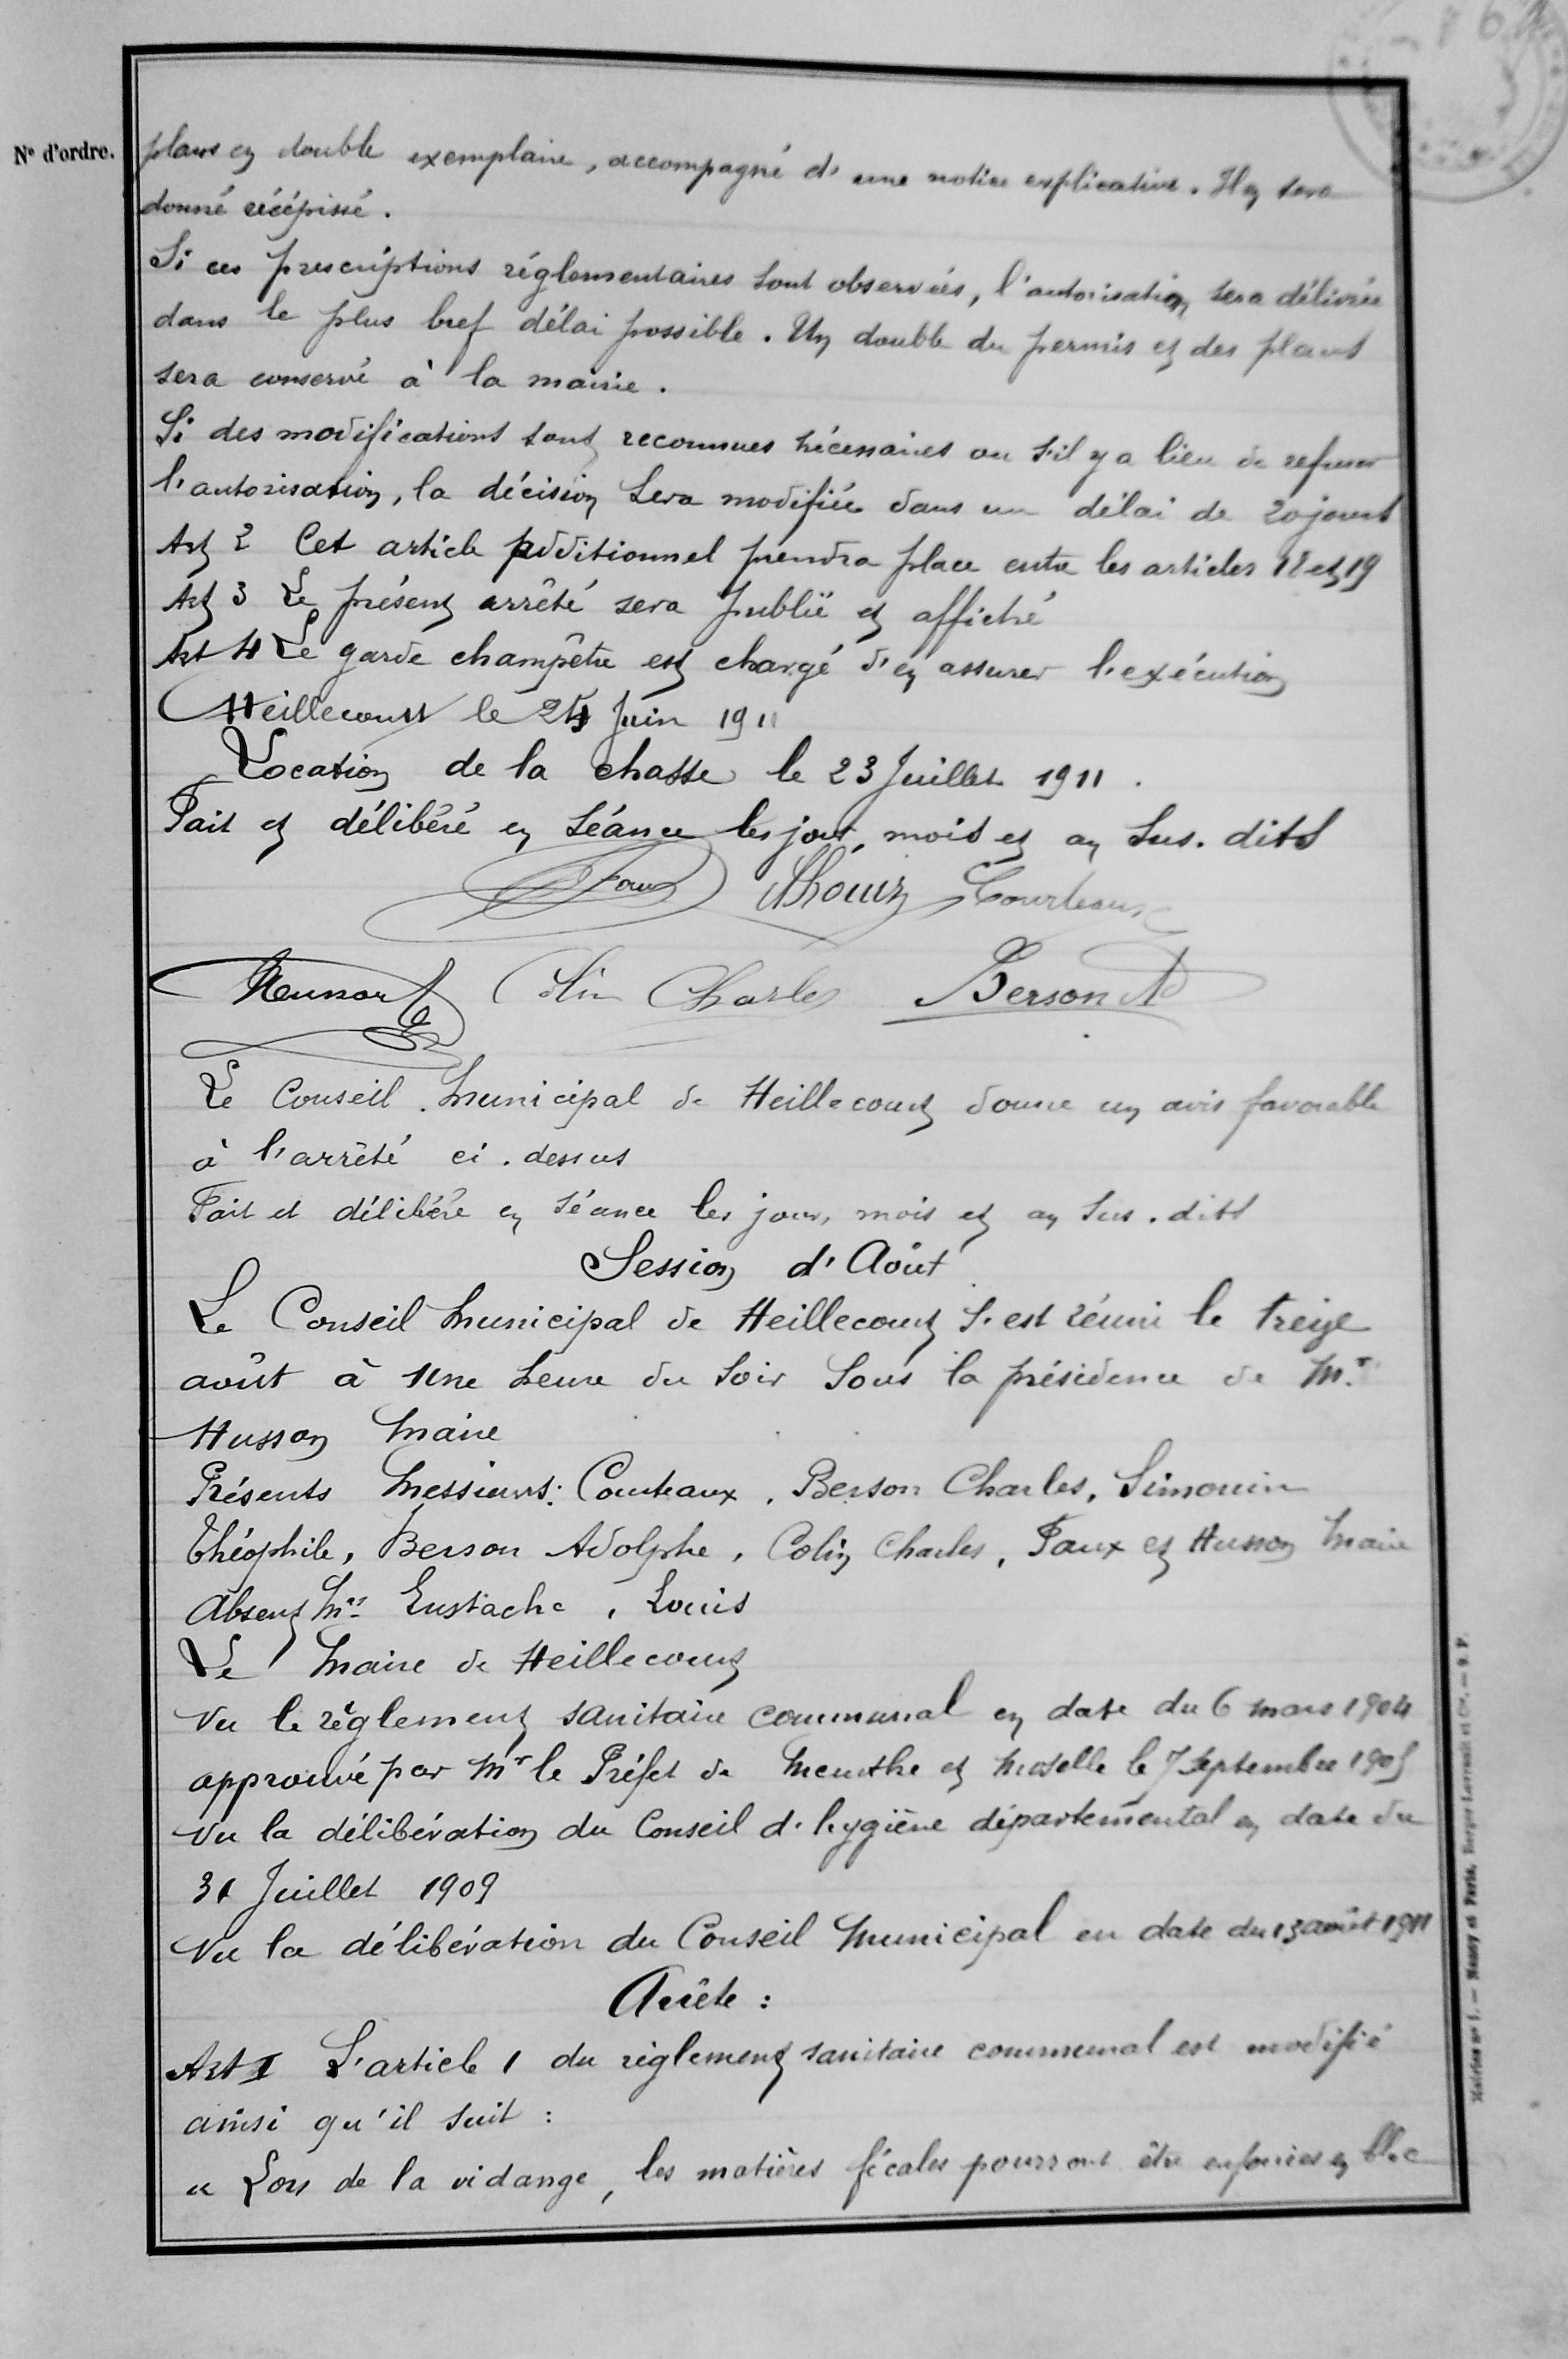 N° d'ordre.
plans en double exemplaire, accompagné d'une notice explicative. Il en sera
donné récépissé.
Si ces prescriptions réglementaires sont observées, l'autorisation sera délivrée
dans le plus bref délai possible. Un double du permis et des plans
sera conservé à la mairie.
Si des modifications sont reconnues nécessaires ou s'il y a lieu de refuser
l'autorisation, la décision sera modifiée dans un délai de 20 jours
Art 2 Cet article additionnel prendra place entre les articles 18 et 19
Art 3 Le présent arrêté sera publié et affiché
Art 4 Le garde champêtre est chargé d'en assurer l'exécution
Heillecourt le 24 Juin 1911
Location de la chasse le 23 Juillet 1911.
Fait et délibéré en séance les jour, mois et an sus. dits
Faux Courteaux
Colin Charles Berson Ad
Le Conseil Municipal de Heillecourt donne un avis favorable
à l'arrêté ci. dessus
Fait et délibéré en séance les jour, mois et an sus. dits
Session d'Août
Le Conseil Municipal de Heillecourt s'est réuni le treize
août à une heure du soir sous la présidence de Mr
Husson Maire
Présents Messieurs: Courteaux, Berson Charles, Simonin
Théophile, Berson Adolphe, Colin Charles, Faux et Husson Maire
Absent Mrs Eustache, Louis
Le Maire de Heillecourt
Vu le règlement sanitaire communal en date du 6 mars 1904
approuvé par Mr le Préfet de Meurthe et Moselle le 7 Septembre 1905
Vu la délibération du Conseil d'hygiène départemental en date du
31 Juillet 1909
Vu la délibération du Conseil Municipal en date du 13 août 1911
Arrête :
Art I L'article 1 du règlement sanitaire communal est modifié
ainsi qu'il suit :
« Lors de la vidange, les matières fécales pourront être enfouies en bloc
Nancy et Paris, Berger-Levrault et Cie.